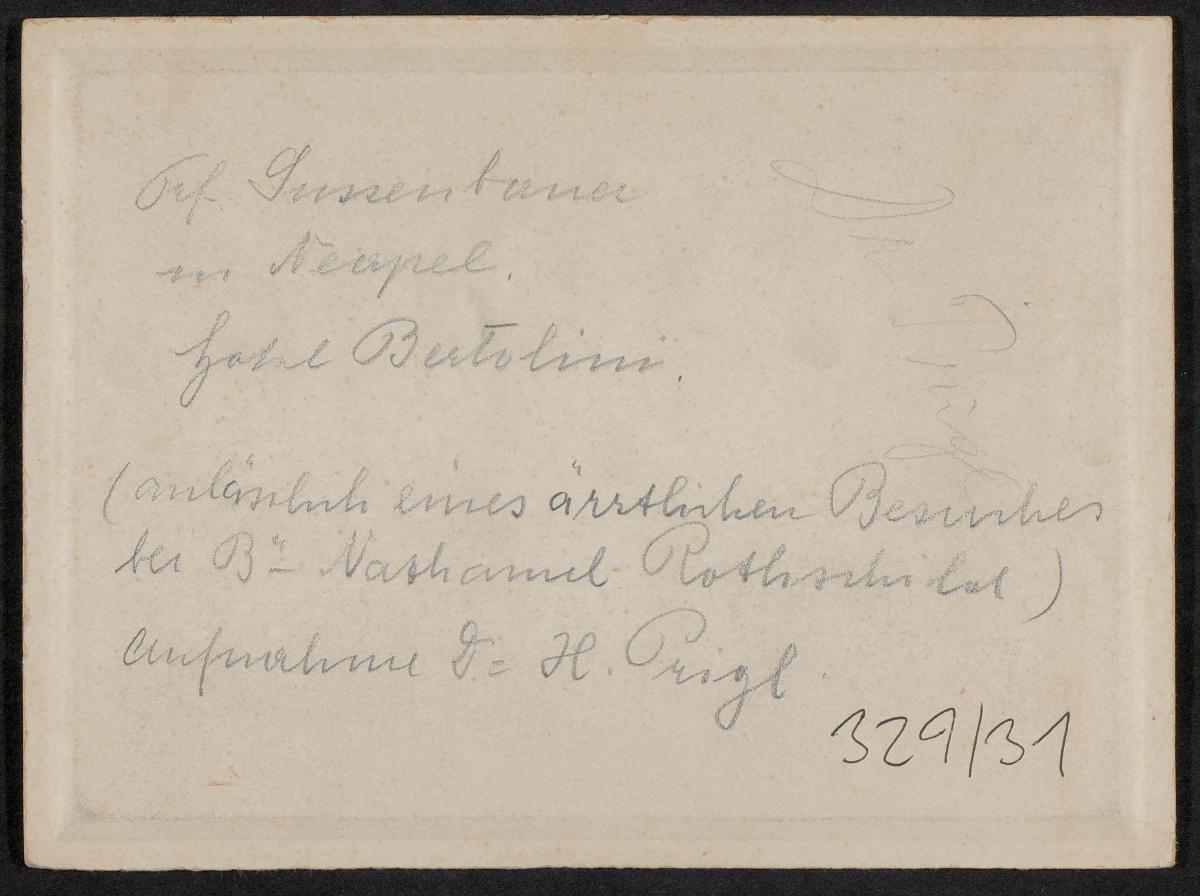 Prf. Gussenbauer
in Neapel.
Hotel Bertolini.
(anläslich eines ärztlichen Besuches
bei Bⁿ Nathaniel Rothschild)
Aufnahme Dr H. Prigl
329/31
Prigl